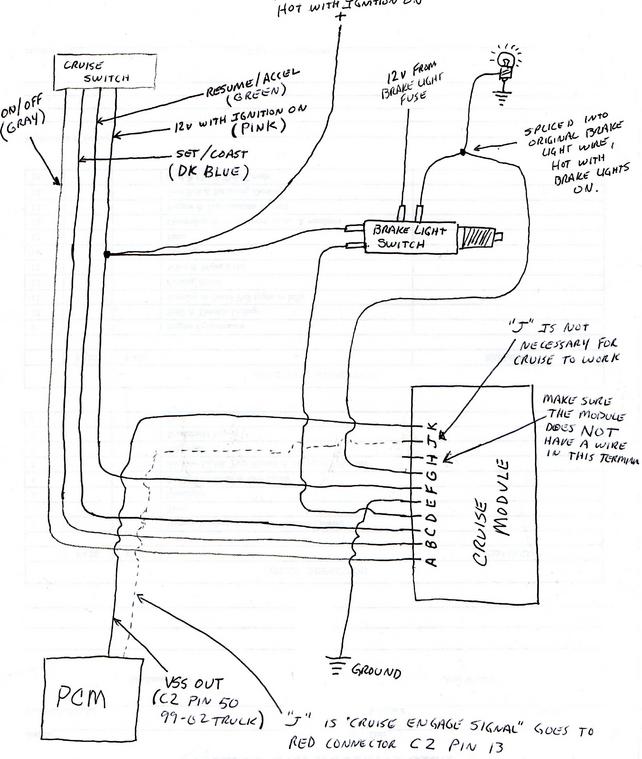 HOT WITH IGNITION ON
+
CRUISE
SWITCH
ON/OFF
(GRAY)
RESUME/ACCEL
(GREEN)
12V WITH IGNITION ON
(PINK)
SET/COAST
(DK BLUE)
12V FROM
BRAKE LIGHT
FUSE
SPLICED INTO
ORIGINAL BRAKE
LIGHT WIRE,
HOT WITH
BRAKE LIGHTS
ON.
BRAKE LIGHT
SWITCH
"J" IS NOT
NECESSARY FOR
CRUISE TO WORK
MAKE SURE
THE MODULE
DOES NOT
HAVE A WIRE
IN THIS TERMINA
K
J
H
G
F
E
D
C
B
A
CRUISE
MODULE
GROUND
PCM
VSS OUT
(C2 PIN 50
99-02 TRUCK)
"J" IS "CRUISE ENGAGE SIGNAL" GOES TO
RED CONNECTOR C2 PIN 13